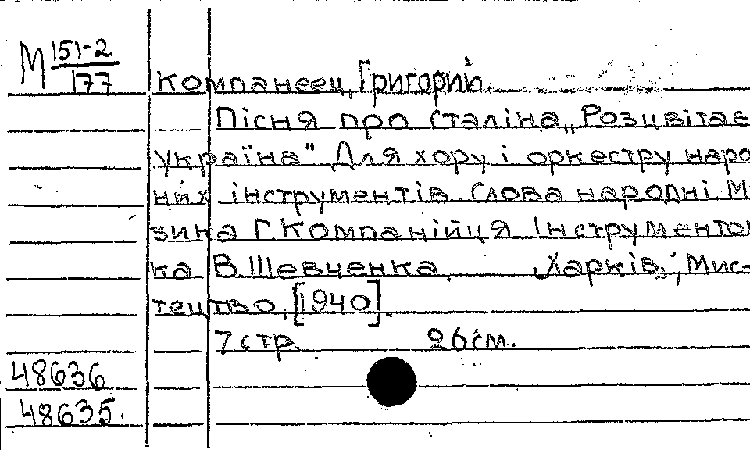 М 151-2
177
Компанеец, Григорий.
Пісня про Сталіна „Розцвітає
Україна" Для хору і оркестру народ
них інструментів. Слова народні. Му
зика Г. Компанійця. Інструментов
ка В. Шевченка. Харків, „Мис-
тецтво, [1940].
7 стр. 26 см.
48636
48635.